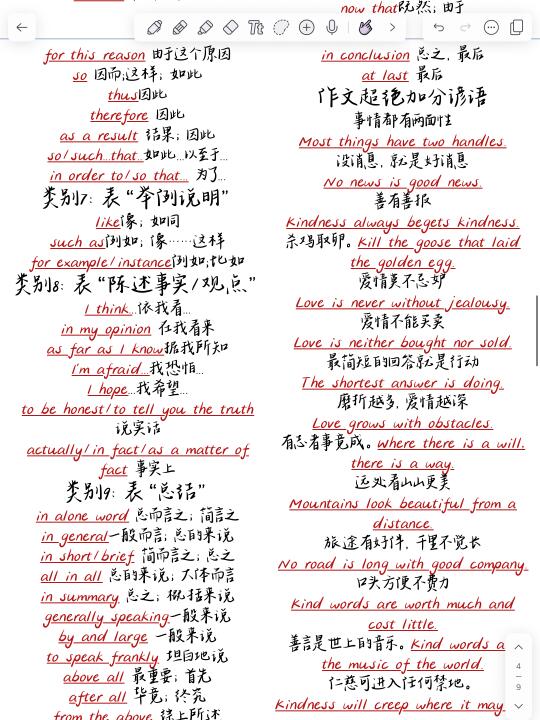 for this reason 由于这个原因
so 因而;这样; 如此
thus因此
therefore 因此
as a result 结果; 因此
so/such...that...如此...以至于...
in order to/so that... 为了...
类别7: 表“举例说明”
like像; 如同
such as例如; 像……这样
for example/instance例如;比如
类别8: 表“陈述事实/观点”
I think...依我看...
in my opinion 在我看来
as far as I know据我所知
I'm afraid...我恐怕...
I hope...我希望...
to be honest/to tell you the truth
说实话
actually/in fact/as a matter of
fact 事实上
类别9: 表“总结”
in alone word 总而言之; 简言之
in general一般而言; 总的来说
in short/brief 简而言之; 总之
all in all 总的来说; 大体而言
in summary 总之; 概括来说
generally speaking一般来说
by and large 一般来说
to speak frankly 坦白地说
above all 最重要; 首先
after all 毕竟; 终究
from the above 综上所述
now that既然; 由于
in conclusion 总之, 最后
at last 最后
作文超绝加分谚语
事情都有两面性
Most things have two handles.
没消息, 就是好消息
No news is good news.
善有善报
Kindness always begets kindness.
杀鸡取卵。Kill the goose that laid
the golden egg.
爱情莫不忌妒
Love is never without jealousy.
爱情不能买卖
Love is neither bought nor sold.
最简短的回答就是行动
The shortest answer is doing.
磨折越多, 爱情越深
Love grows with obstacles.
有志者事竟成。Where there is a will,
there is a way.
远处看山山更美
Mountains look beautiful from a
distance.
旅途有好伴, 千里不觉长
No road is long with good company.
口头方便不费力
Kind words are worth much and
cost little.
善言是世上的音乐。Kind words a
the music of the world.
仁慈可进入任何禁地。
Kindness will creep where it may
4
9